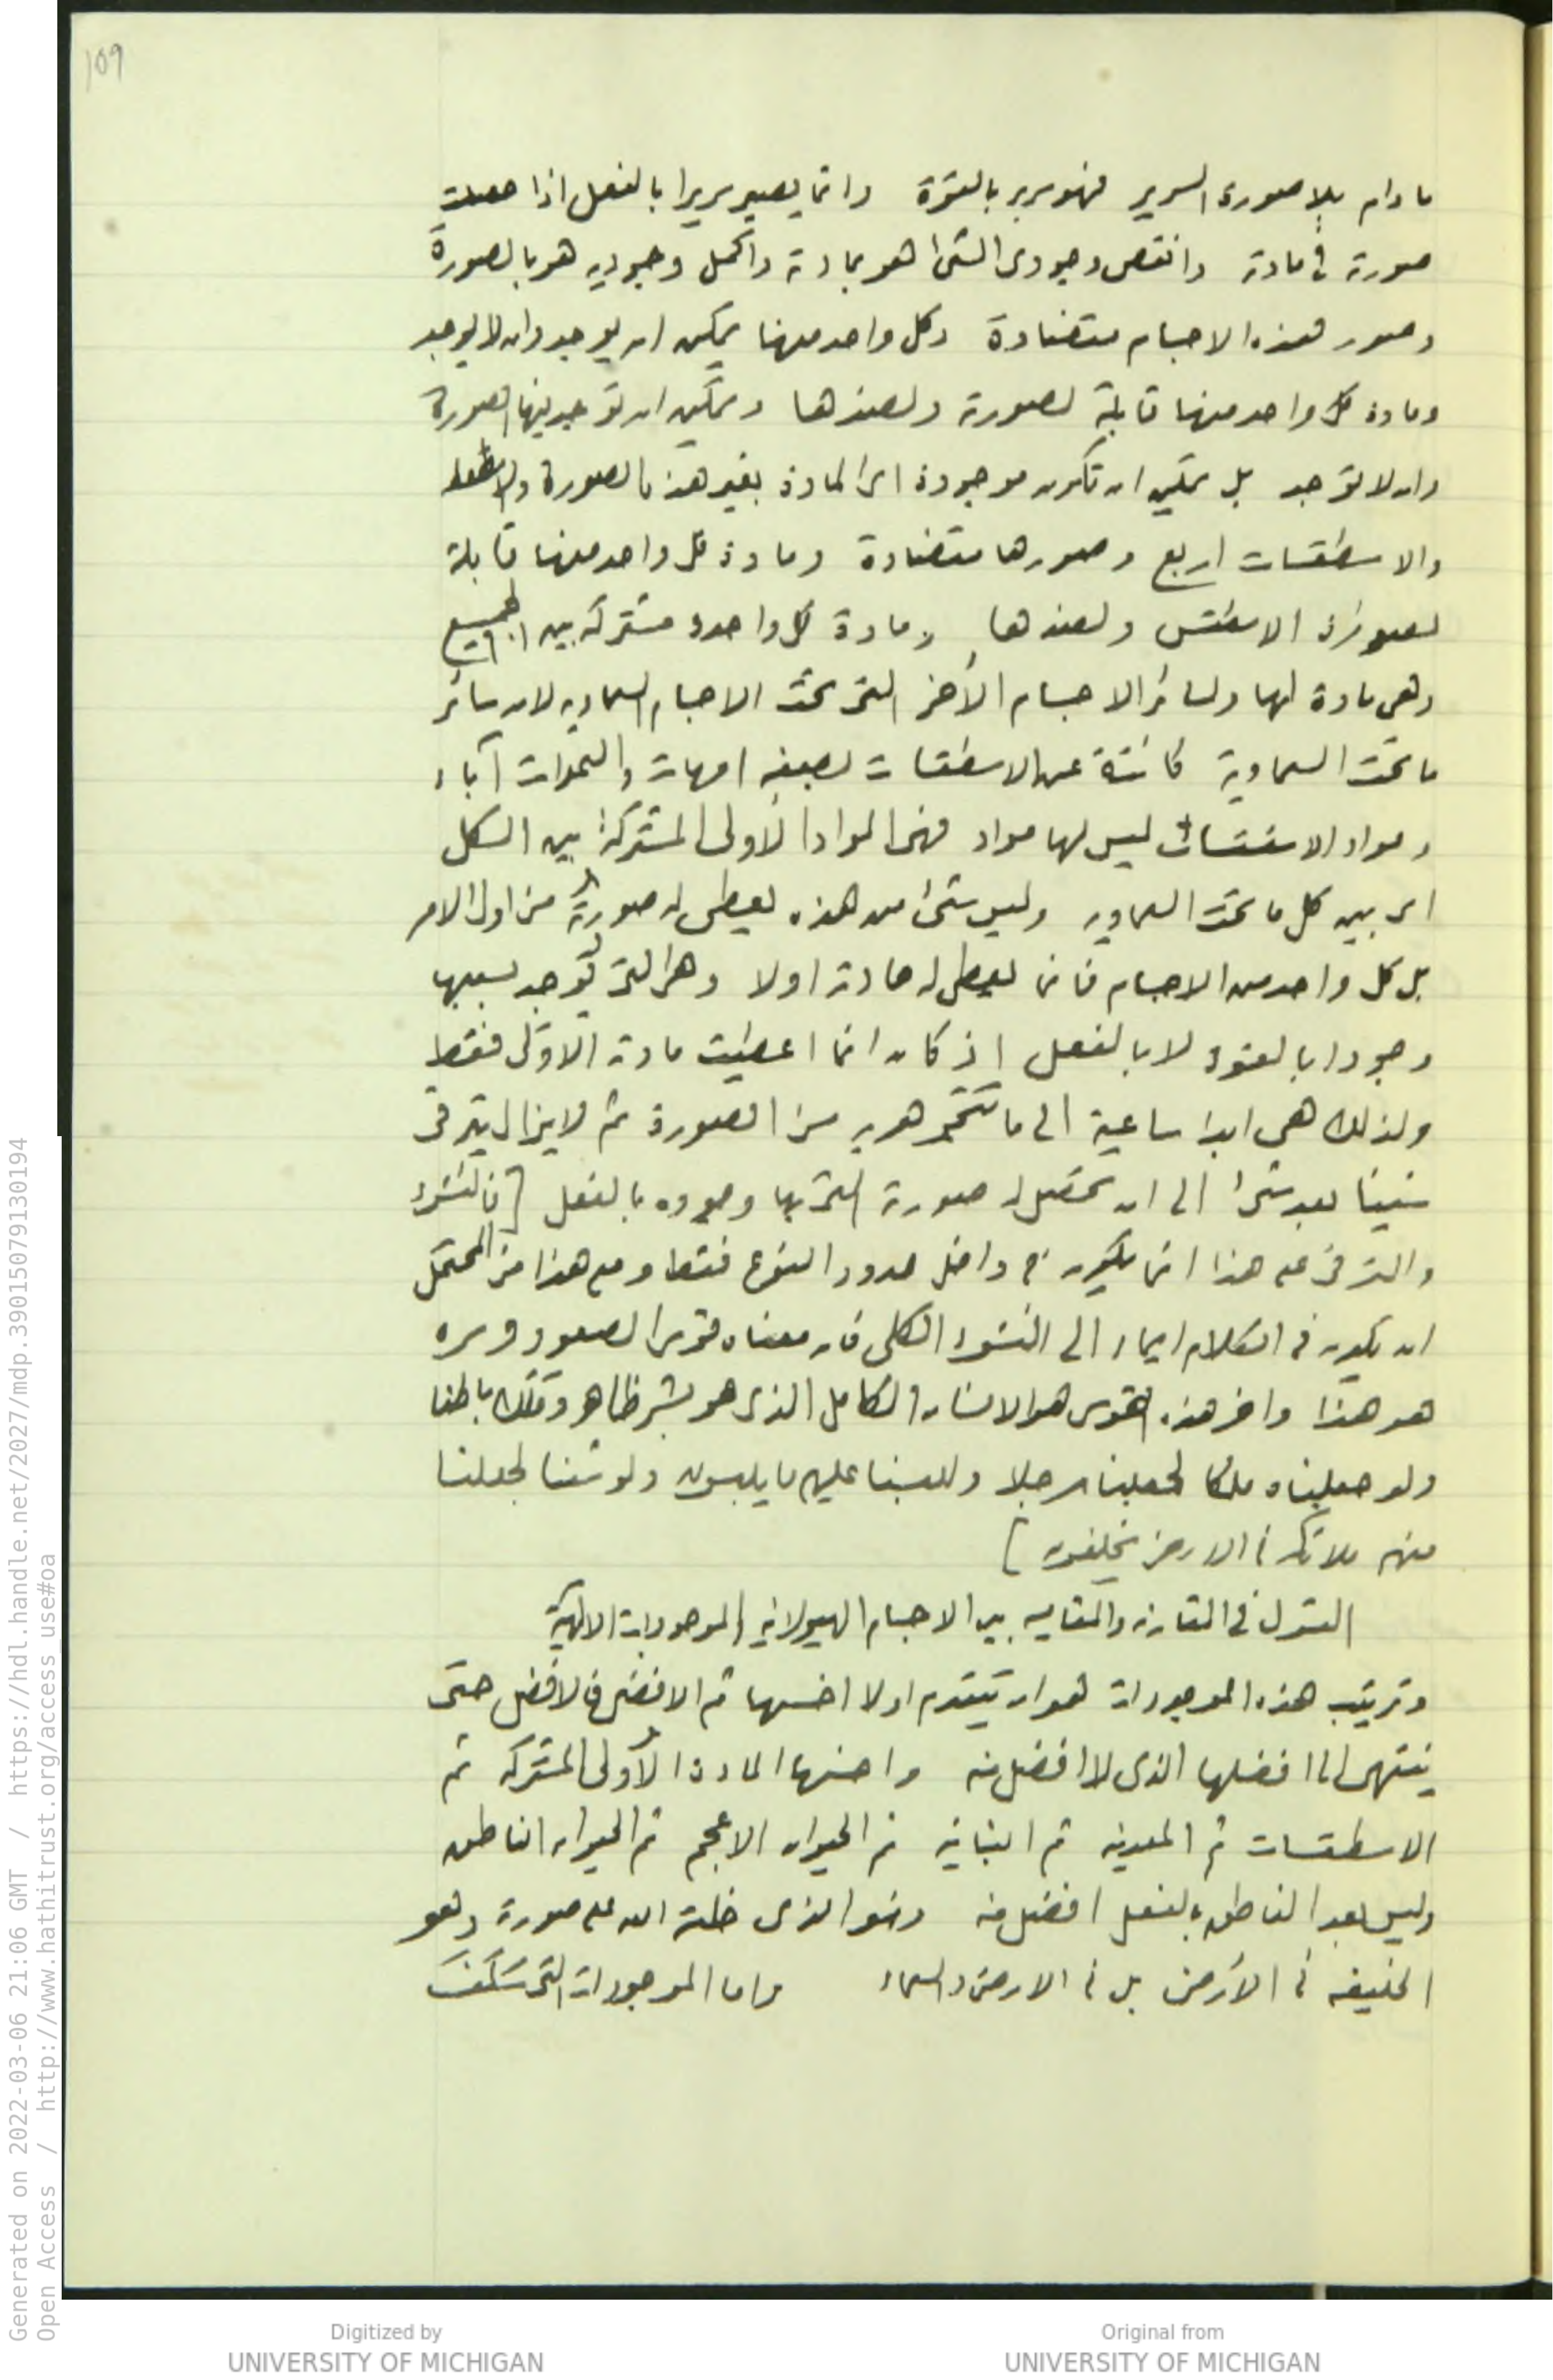 109
ما دام بلا صورة السرير فهو سرير بالقوة وانما يصير سريرا بالفعل اذا حصلت
صورته في مادته وانقص وجودى الشئ هو بمادته واكمل وجوديه هو بالصورة
وصور هذه الاجسام متضادة وكل واحد منها يمكن ان يوجد وان لا يوجد
ومادة كل واحد منها قابلة لصورته ولضدها ويمكن ان توجد فيها الصورة
وان لا توجد بل يمكن ان تكون موجودة اى المادة بغير هذه الصورة
والاسطقسات اربع وصورها متضادة ومادة كل واحد منها قابلة
لصورة الاسطقس ولضدها ومادة كل واحدة مشتركة بين الجميع
وهى مادة لها ولسائر الاجسام الأخر التى تحت الاجسام السماوية لان سائر
ما تحت السماوية كائنة عن الاسطقسات امهات والسموات آباء
ومواد الاسطقسات ليس لها مواد فهى المواد الأولى المشتركة بين الكل
اى بين كل ما تحت السماوية وليس شئ من هذه يعطى له صورته من اول الامر
بل كل واحد من الاجسام فانما يعطى له مادته اولا وهى التى توجد بسببها
وجودا بالقوة لا بالفعل اذ كان انما اعطيت مادته الاولى فقط
ولذلك هى ابدا ساعية الى ما تتجوهر به من الصورة ثم لا يزال يترقى
شيئا بعد شئ الى ان تحصل له صورته التى بها وجوده بالفعل [فالنشوء
والترقى على هذا انما يكون فى داخل حدود النوع فقط ومع هذا من المحتمل
ان يكون فى الكلام ايماء الى النشوء الكلى فان معناه قوس الصعود وسره
هو هذا واخر هذه القوس هو الانسان الكامل الذى هو بشر ظاهر وملك باطنا
ولو جعلناه ملكا لجعلناه رجلا وللبسنا عليهم ما يلبسون ولو شئنا لجعلنا
منهم ملائكة فى الارض يخلفون]
القول في المقارنة والمقايسة بين الاجسام الهيولانية والموجودات الالهية
وترتيب هذه الموجودات هو ان تتقدم اولا اخسها ثم الافضل فالافضل حتى
ينتهى الى افضلها الذى لا افضل منه واخسها المادة الأولى المشتركة ثم
الاسطقسات ثم المعدنية ثم النباتية ثم الحيوان الاعجم ثم الحيوان الناطق
وليس بعد الناطق بالفعل افضل منه وهو الذى خلقه الله على صورته وهو
الخليفة فى الأرض بل فى الارض والسماء واما الموجودات التى سَلَفَت
Generated on 2022-03-06 21:06 GMT / https://hdl.handle.net/2027/mdp.39015079130194
Open Access / http://www.hathitrust.org/access_use#oa
Digitized by
UNIVERSITY OF MICHIGAN
Original from
UNIVERSITY OF MICHIGAN